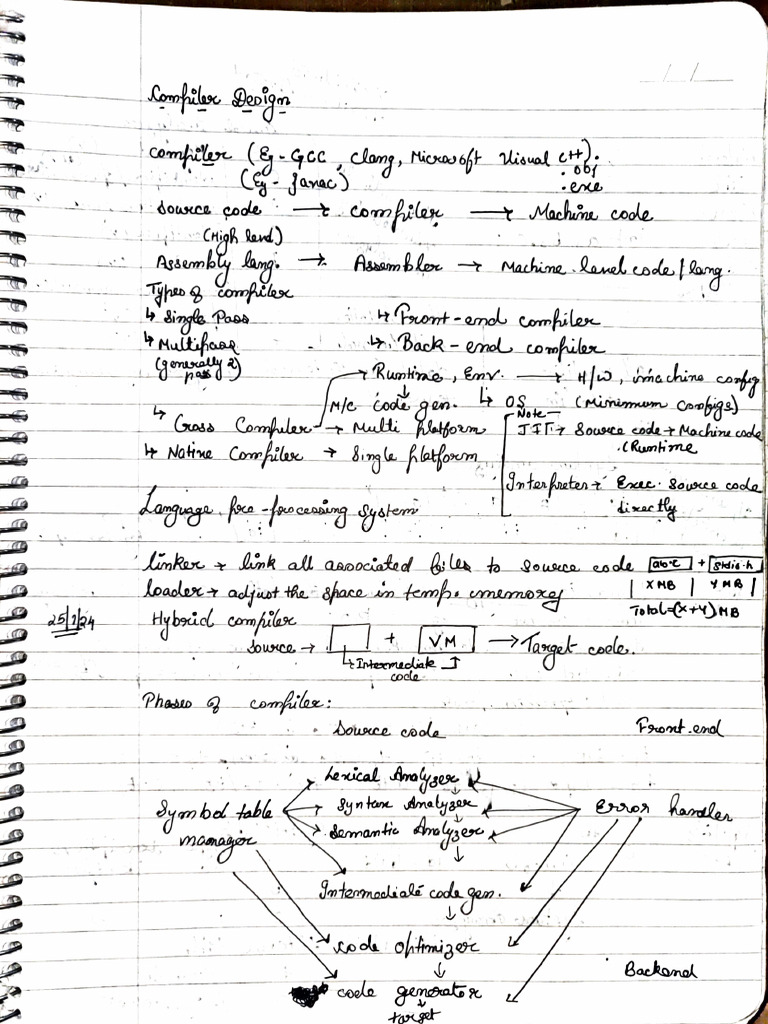 Compiler Design
compiler (Eg - GCC, Clang, Microsoft Visual C++).
(Eg - Javac)
.obj
.exe
Source code → compiler → Machine code
(High level)
Assembly lang. → Assembler → Machine level code / lang.
Types of compiler
↳ Single Pass ↳ Front-end compiler
↳ Multipass ↳ Back-end compiler
(generally 2 pass)
→ Runtime, Env. → H/W, machine config
M/C code gen. ↳ OS (Minimum configs)
↳ Cross Compiler → Multi platform
↳ Native Compiler → Single platform
Note
JIT → Source code → Machine code
(Runtime
Interpreter → Exec. source code
directly
Language pre-processing system
linker → link all associated files to source code abc + stdio.h
| X MB | Y MB |
loader → adjust the space in temp. memory
Total = (X+Y) MB
25/7/24
Hybrid compiler
source → + VM → Target code.
↳ Intermediate code
Phases of compiler:
Source code Front-end
Lexical Analyzer
Symbol table manager
Syntax Analyzer
Error handler
Semantic Analyzer
↓
Intermediate code gen.
↓
code optimizer
↓
Backend
code generator
↓
target